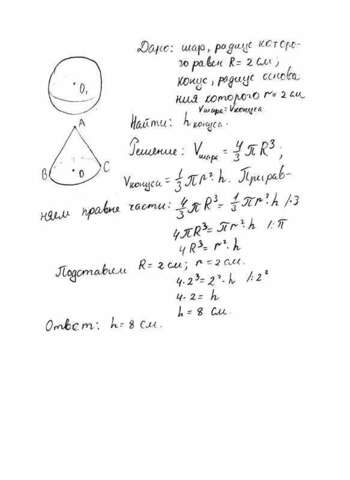 Дано: шар, радиус которо-
го равен R = 2 см,
конус, радиус основа
ния которого r = 2 см
Vшара = Vконуса
Найти: h конуса.
Решение: Vшара = 4/3 πR³;
Vконуса = 1/3 πr²·h. Прирав-
няем правые части: 4/3 πR³ = 1/3 πr²·h /·3
4πR³ = πr²·h /:π
4R³ = r²·h
Подставим R = 2 см; r = 2 см.
4·2³ = 2²·h /:2²
4·2 = h
h = 8 см.
Ответ: h = 8 см.
O₁
A
B
O
C